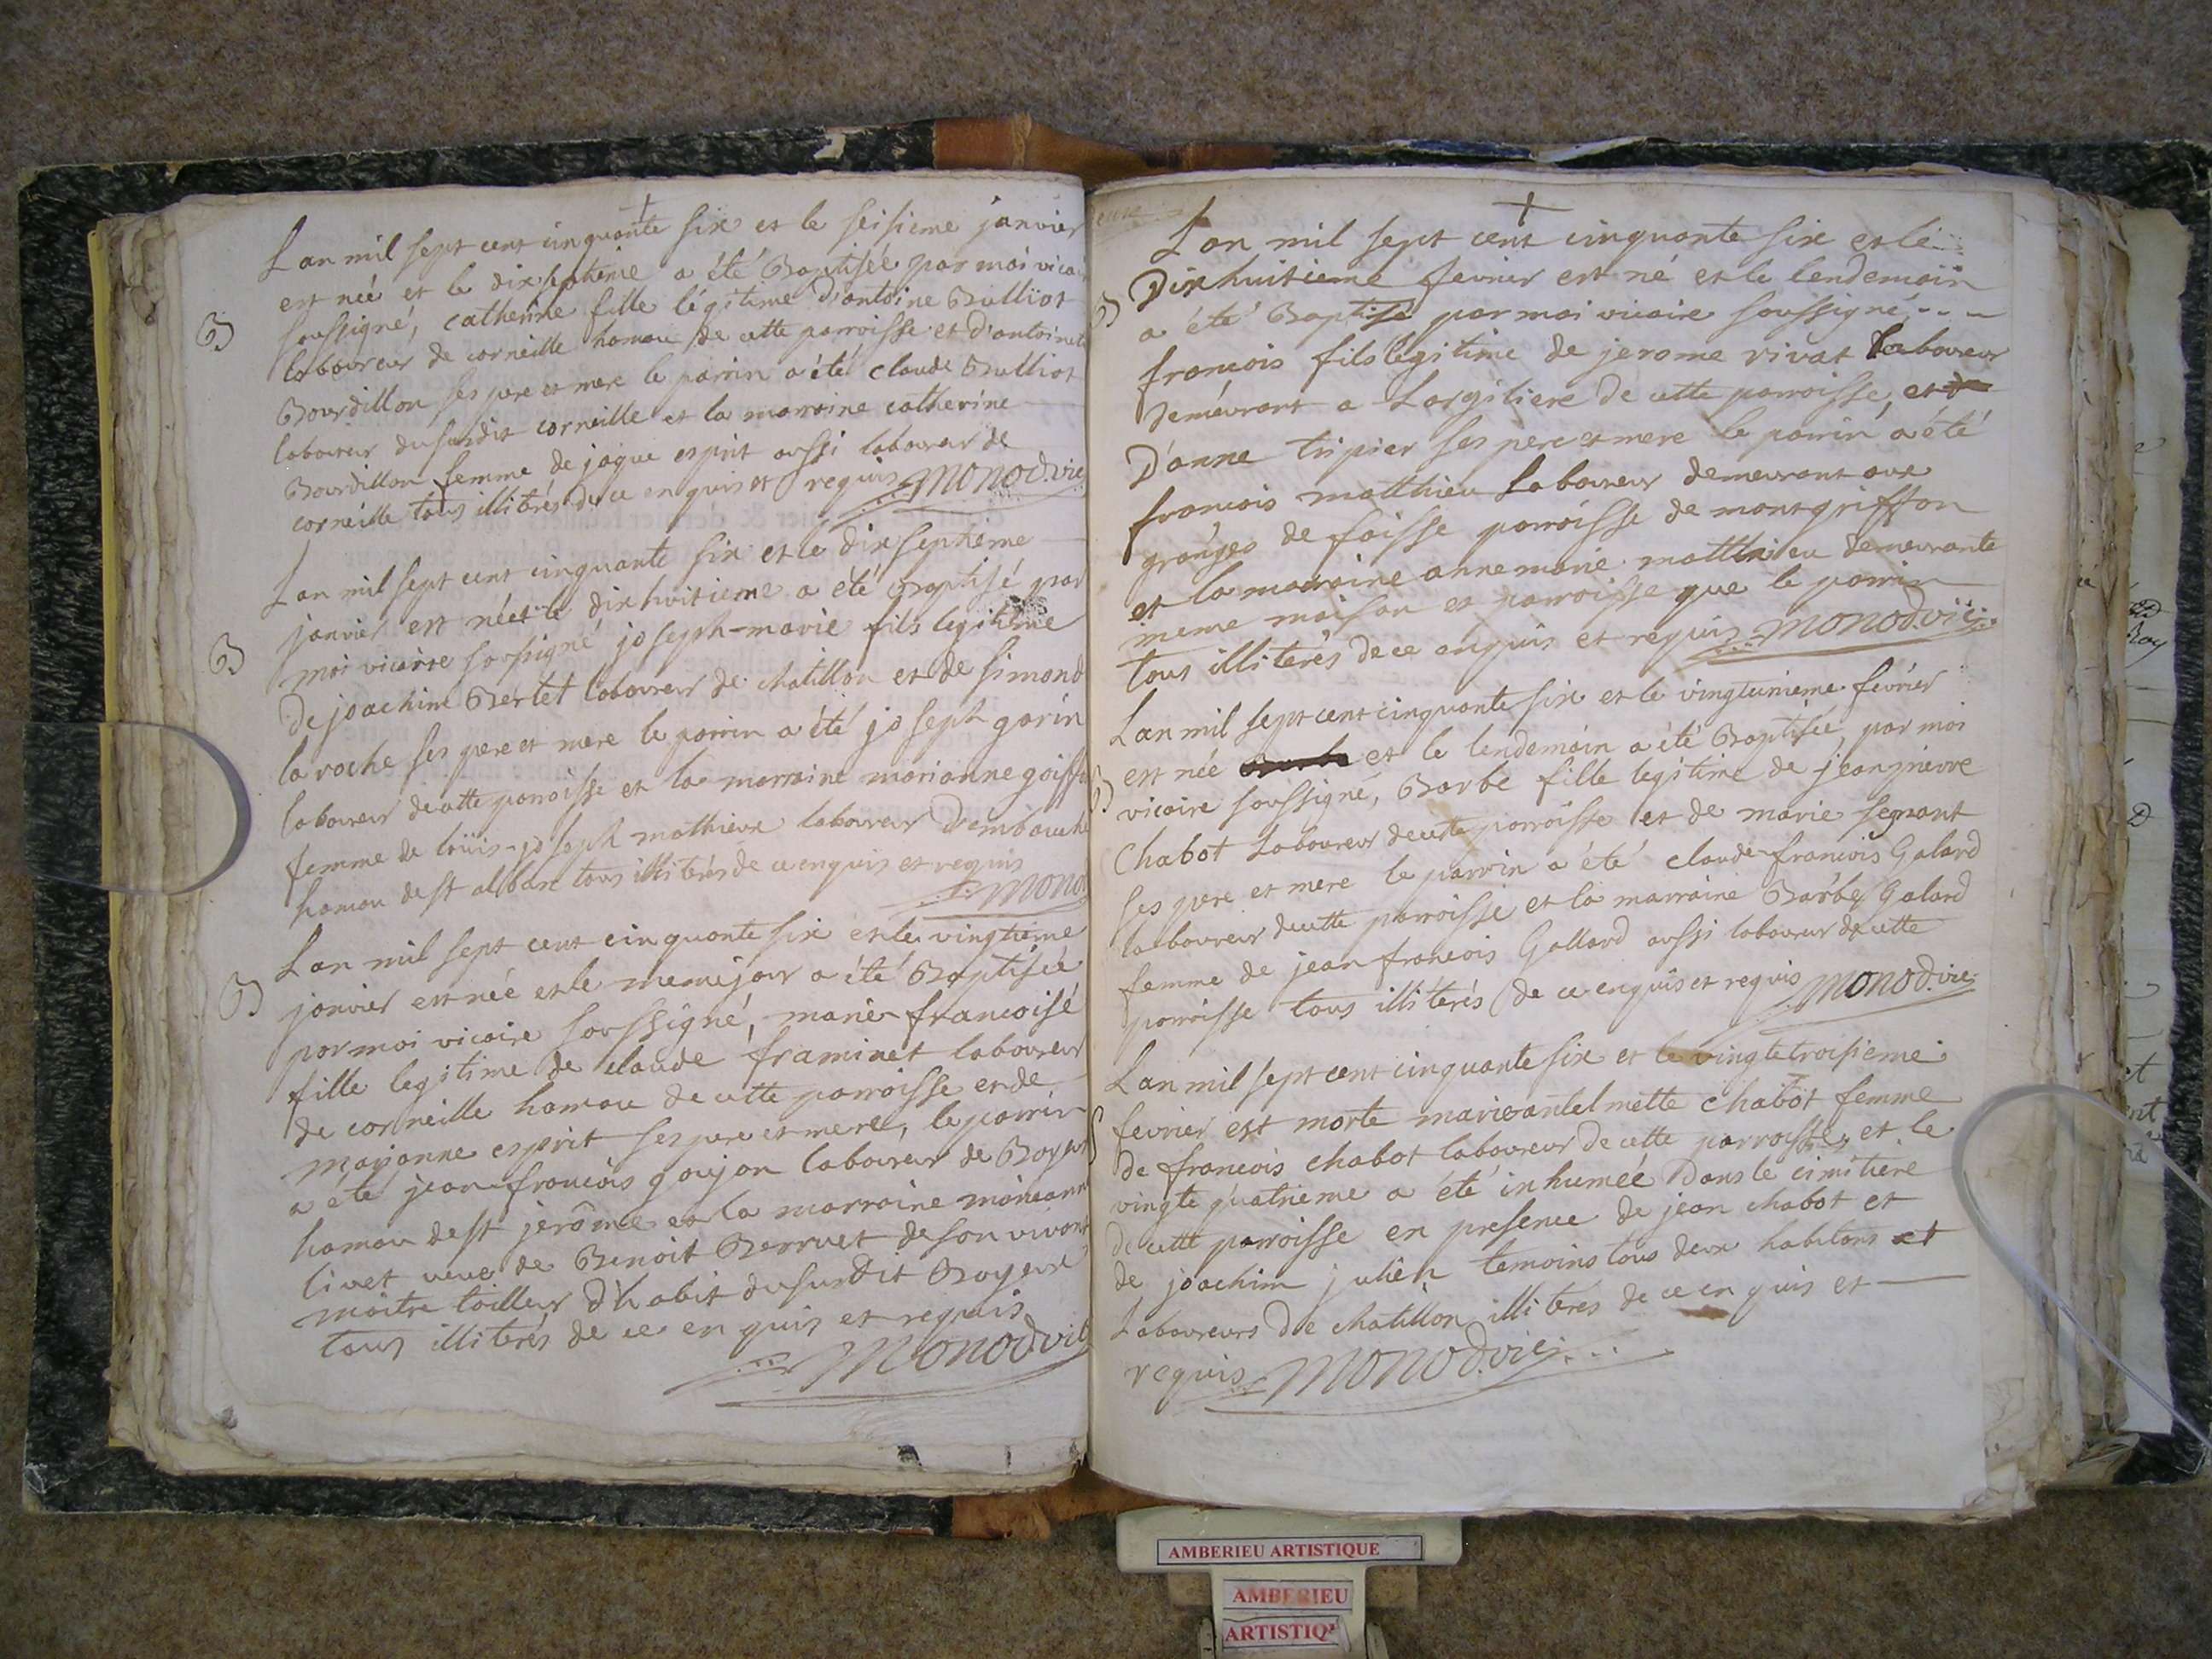 +
Lan mil sept cent cinquante six et le seisieme janvier
est née et le dixseptieme a été Baptisée par moi vicaire
B
soussigné, catherine fille légitime d'antoine Bulliot
laboureur de corneille hamau de cette parroisse et d'antoinette
Bourdillon ses pere et mere le parrin a été claude Bulliot
laboureur du susdit corneille et la marraine catherine
Bourdillon femme de jaque esprit aussi laboureur de
corneille tous illiterés de ce enquis et requis Monod. vic
Lan mil sept cent cinquante six et le dix septieme
janvier est né et le dix huitieme a été Baptisé par
B
moi vicaire soussigné joseph-marie fils legitime
de joachim Bertet laboureur de chatillon et de simond
la roche ses pere et mere le parrin a été joseph garin
laboureur de cette parroisse et la marraine marianne goiffo
femme de loüis-joseph mathieux laboureur d'embouche
hamau de st alban tous illiterés de ce enquis et requis
Monod
Lan mil sept cent cinquante six et le vingtieme
B
janvier est née et le meme jour a été Baptisée
par moi vicaire soussigné, marie-francoise
fille legitime de claude framinet laboureur
de corneille hamau de cette parroisse et de
marianne esprit ses pere et mere, le parrin
a été jean-francois goujon laboureur de Boyeux
hamau de st jerôme et la marraine
livet veuve de Benoit Berruet de son vivant
maitre tailleur d'habit du susdit Boyeux
tous illiterés de ce enquis et requis
Monod. vic
+
Lan mil sept cent cinquante six et le
Dixhuitieme fevrier est né et le lendemain
B
a été Baptisé par moi vicaire soussigné
francois fils legitime de jerome vivat laboureur
demeurant a Largiliere de cette parroisse, et
D'anne tripier ses pere et mere le parrin a été
francois matthieu Laboureur demeurant aux
granges de faisse parroisse de montgriffon
et la marraine anne marie matthieu demeurante
meme maison et parroisse que le parrin
tous illiterés de ce enquis et requis Monod. vic
Lan mil sept cent cinquante six et le vingtunieme février
est née et le lendemain a été Baptisée par moi
B
vicaire soussigné, Barbe fille legitime de jean pierre
Chabot Laboureur de cette parroisse et de marie segnant
ses pere et mere le parrin a été claude francois Galard
laboureur de cette parroisse et la marraine Barbe Galard
femme de jean francois Gallard aussi laboureur de cette
parroisse tous illiterés de ce enquis et requis Monod. vic
Lan mil sept cent cinquante six et le vingtetroisieme
S
fevrier est morte marie antelmette chabot femme
de francois chabot laboureur de cette parroisse, et le
vingte quatrieme a été inhumée Dans le cimitiere
de cette parroisse en presence de jean chabot et
de joachim julien temoins tous deux habitans et
Laboureurs De chatillon illiterés de ce en quis et
requis Monod. vic
AMBERIEU ARTISTIQUE
AMBERIEU
ARTISTIQ